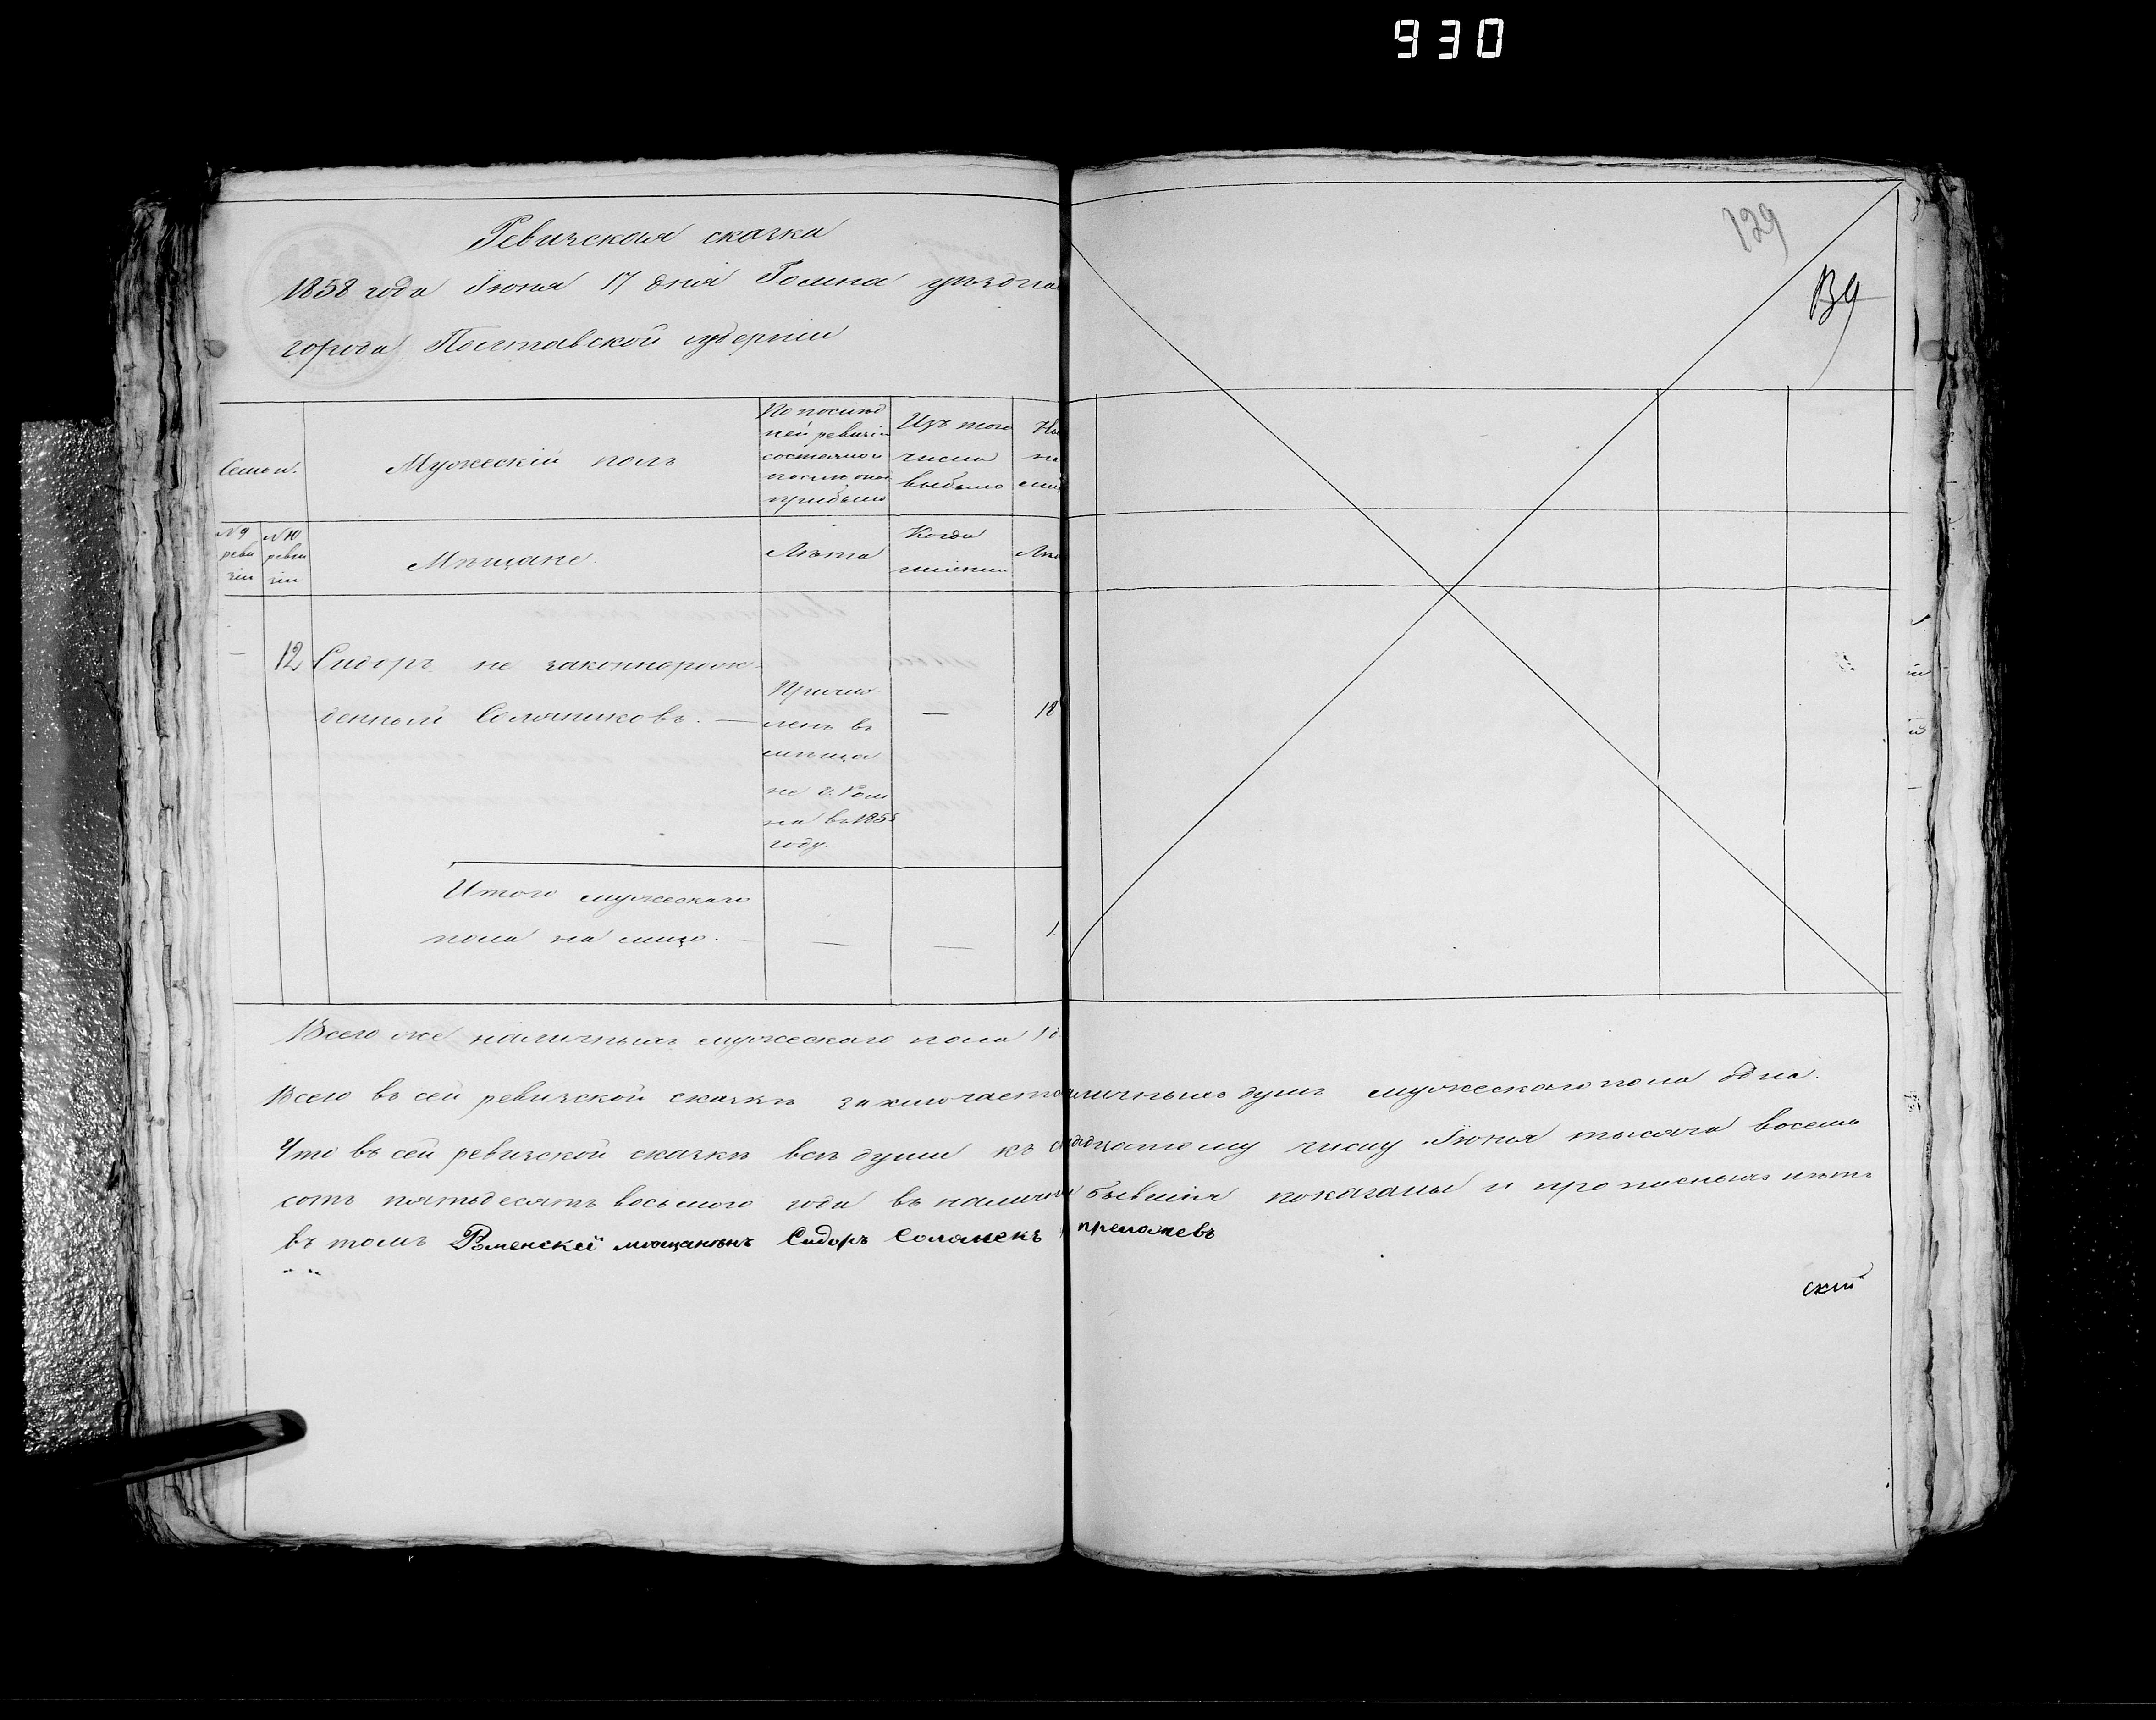 930
129
139
Ревизская сказка
1858 года Июня 17 дня Ромна уѣздна
города Полтавской губерніи
Семьи.
Мужескій полъ
По послѣд
ней ревизіи
состояло и
послѣ оной
прибыло
Изъ того
числа
выбыло
Ны
нѣ
№ 9
реви
зіи
№ 10
реви
зіи
Мѣщане.
Лѣта
Когда
именно
Лѣ
— 12 Сидоръ не законнорож-
денный Соляниковъ. —
Причис-
ленъ въ
мѣща
не г. Ром
на въ 1855
году.
—
18
Итого мужескаго
пола на лицо. — — — 1.
Всего же наличныхъ мужескаго пола 1 д
Всего въ сей ревизской сказкѣ заключаетс аличныхъ душъ мужескаго пола одна.
Что въ сей ревизской сказкѣ всѣ души къ надцатому числу Июня тысяча восемь
сотъ пятьдесятъ восьмого года въ наличн бывшія показаны и прописныхъ нѣтъ
въ томъ Роменскій мѣщанинъ Сидоръ Соляник
скій